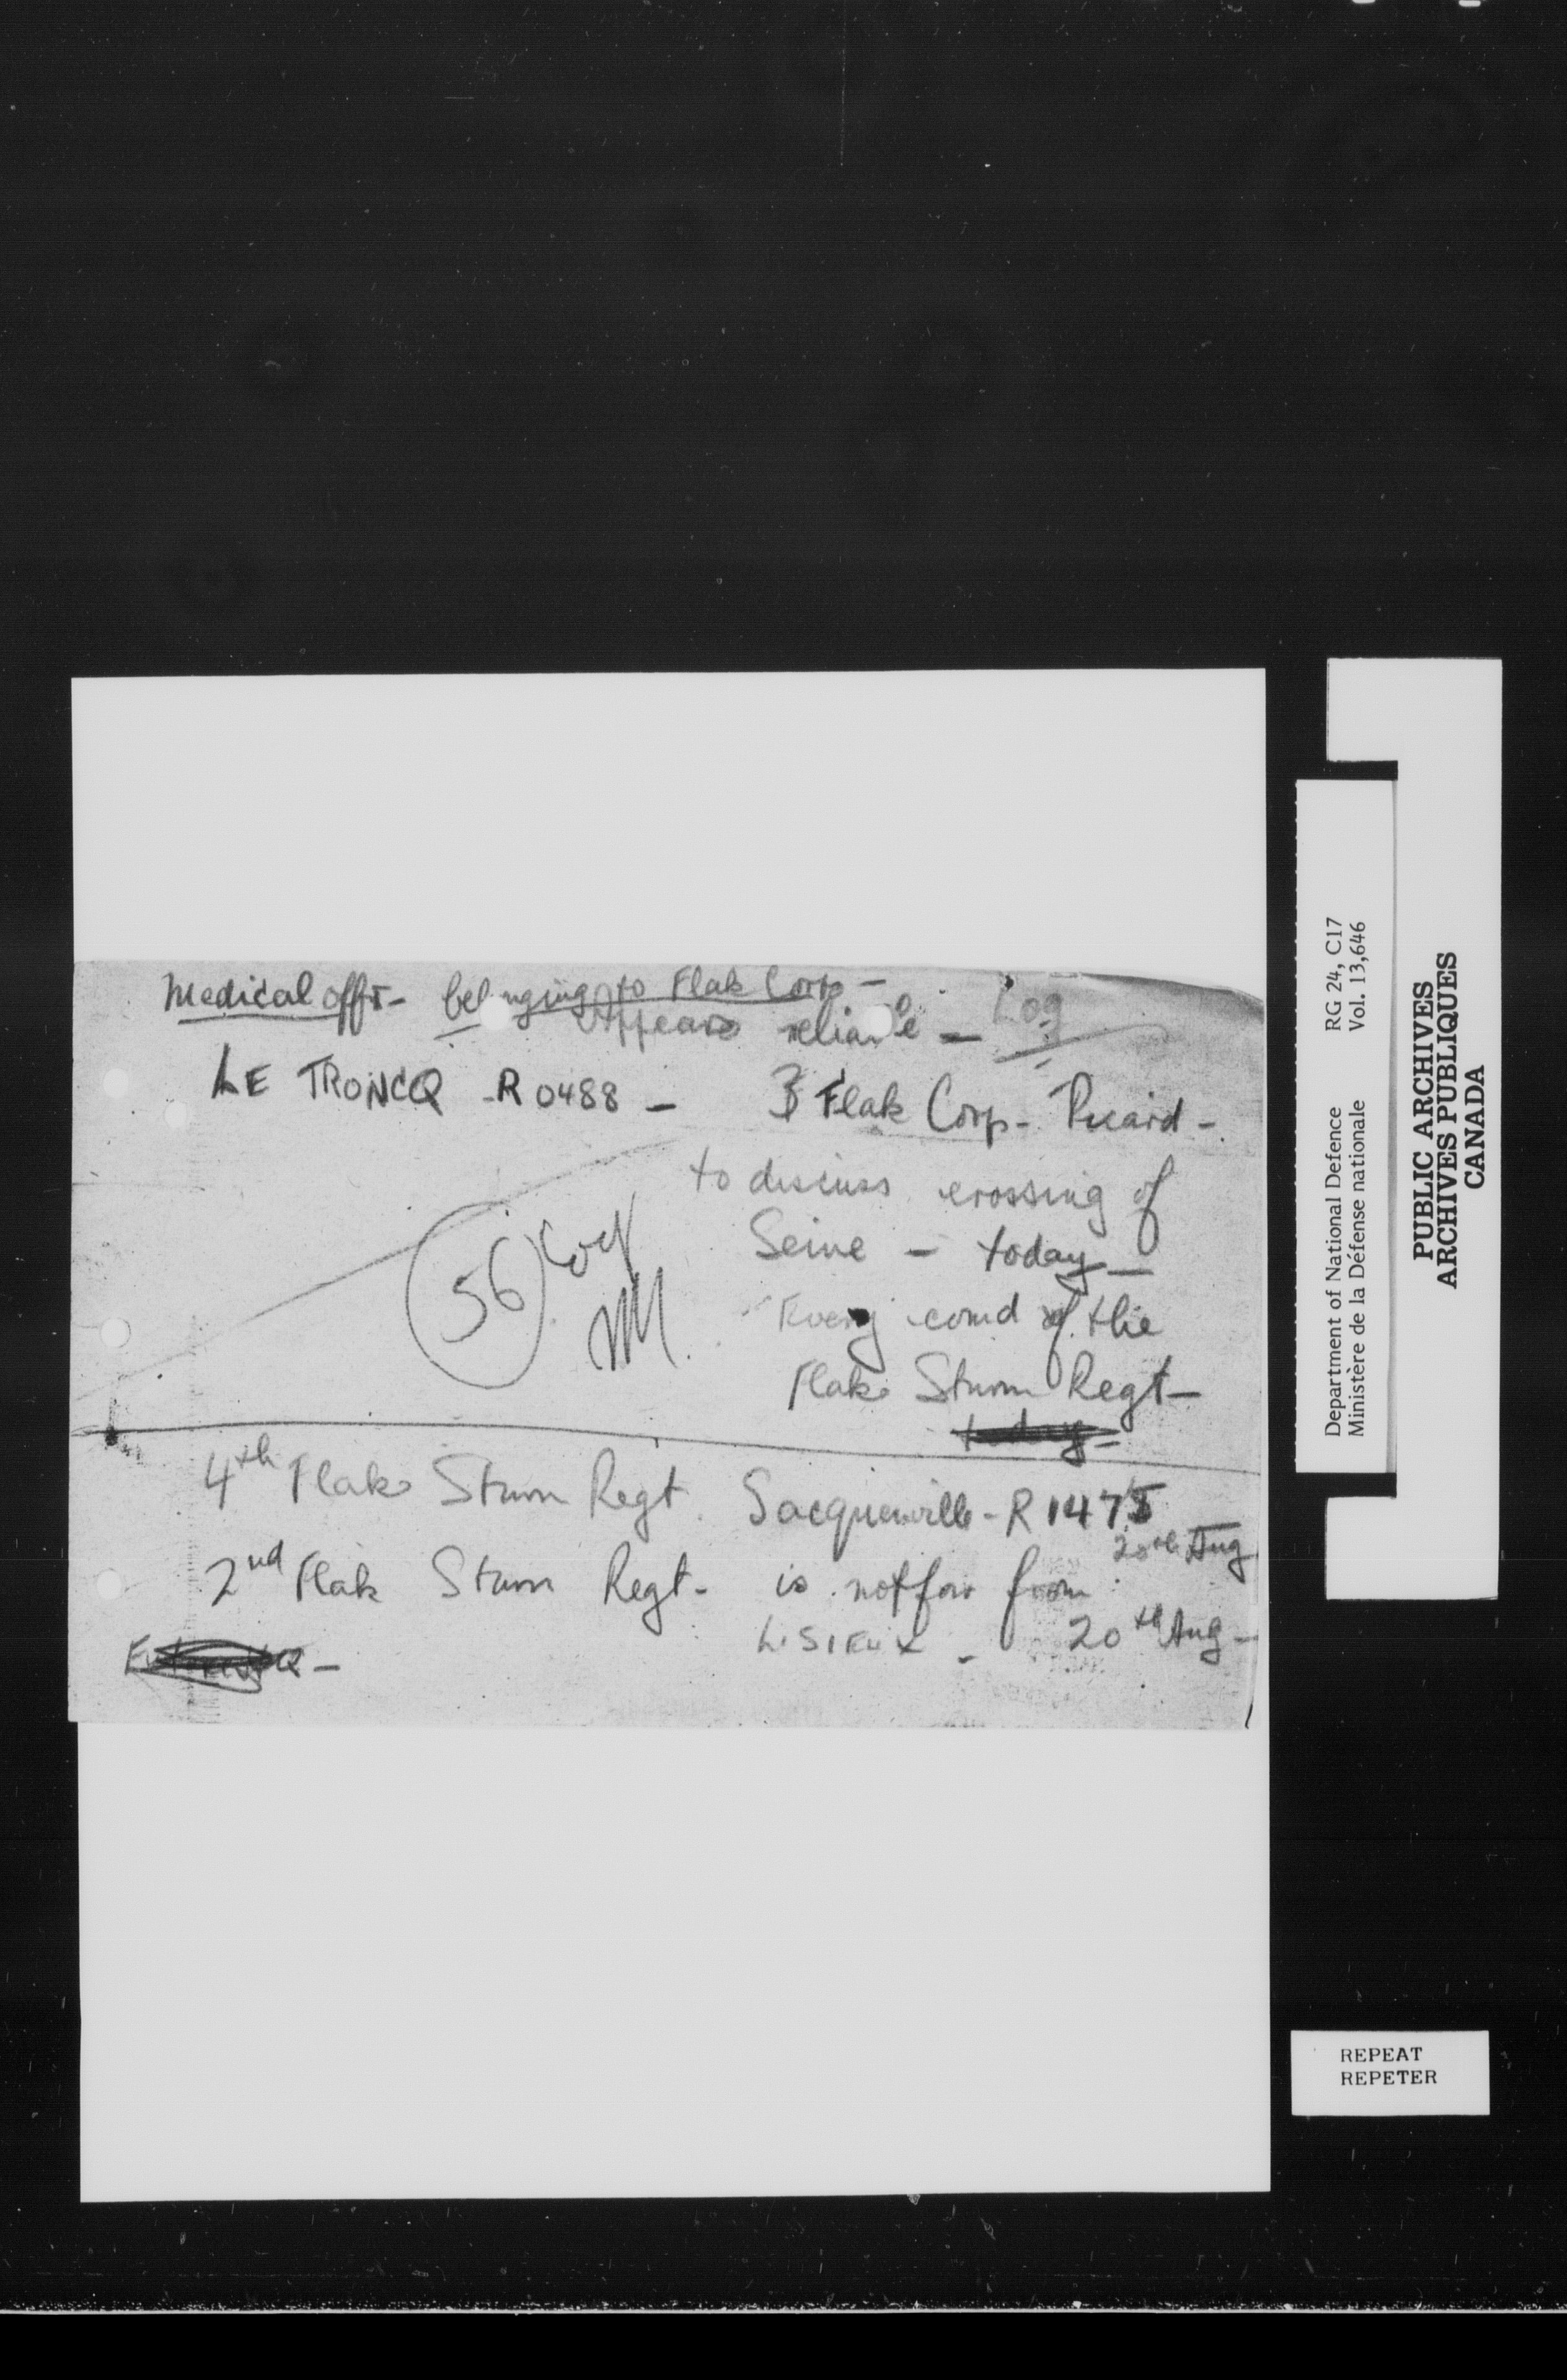 Medical offr - belonging to Flak Corp -
Appears reliable - Log
LE TRONCQ - R 0488 - 3 Flak Corp -
to discuss crossing of
Seine - today -
56 Log
Every comd of the
Flak Sturm Regt -
today -
4th Flak Sturm Regt. Sacquenville - R 1475
20th Aug
2nd Flak Sturm Regt - is not far from
LISIEUX - 20th Aug -
Department of National Defence RG 24, C17
Ministère de la Défense nationale Vol. 13,646
PUBLIC ARCHIVES
ARCHIVES PUBLIQUES
CANADA
REPEAT
REPETER